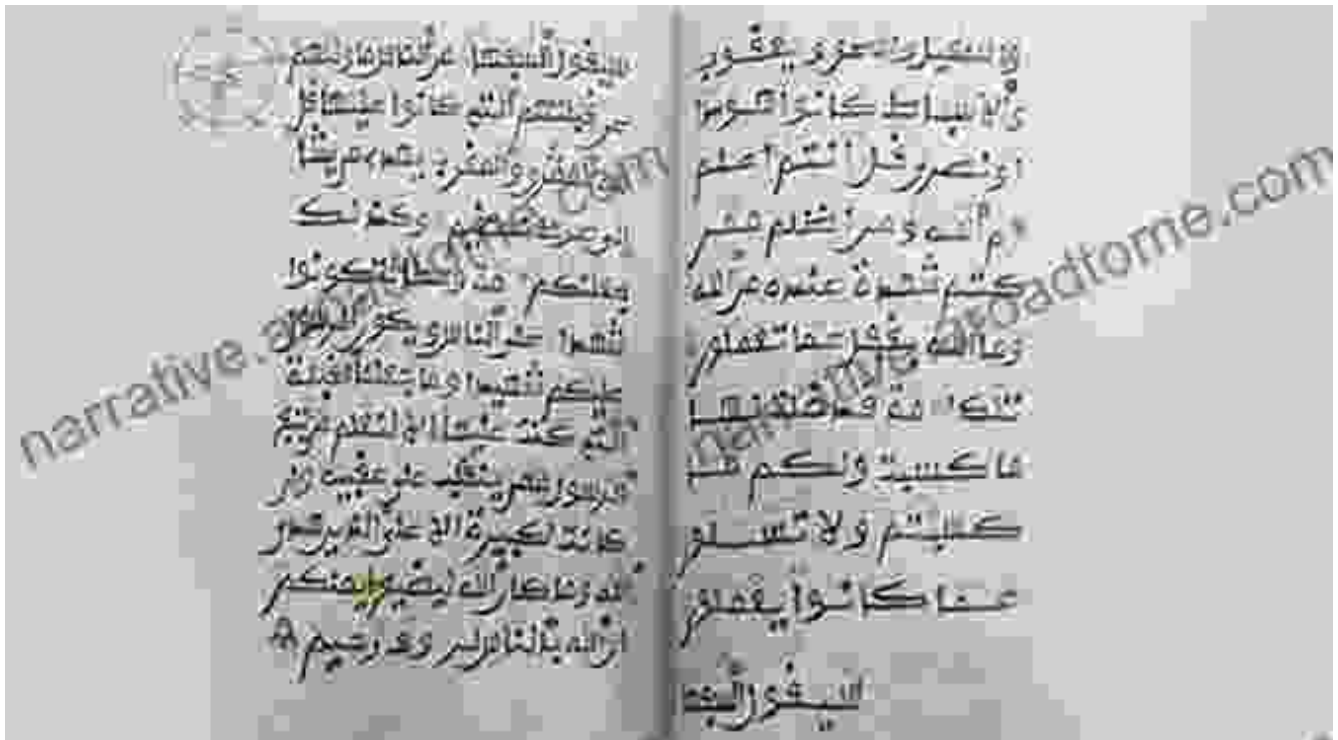 واسمعيل واسحق ويعقوب
والاسباط كانوا هودا
او نصرى قل انتم اعلم
ام الله ومن اظلم ممن
كتم شهدة عنده من الله
وما الله بغفل عما تعملون
تلك امة قد خلت لها
ما كسبت ولكم ما
كسبتم ولا تسلون
عما كانوا يعملون
سيقول السفها
سيقول السفها من الناس ما وليهم
عن قبلتهم التي كانوا عليها قل
لله المشرق والمغرب يهدي من يشا
الى صرط مستقيم وكذلك
جعلنكم امة وسطا لتكونوا
شهدا على الناس ويكون الرسول
عليكم شهيدا وما جعلنا القبلة
التي كنت عليها الا لنعلم من يتبع
الرسول ممن ينقلب على عقبيه وان
كانت لكبيرة الا على الذين هدى
الله وما كان الله ليضيع ايمنكم
ان الله بالناس لروف رحيم
narrative.aroadtome.com
narrative.aroadtome.com